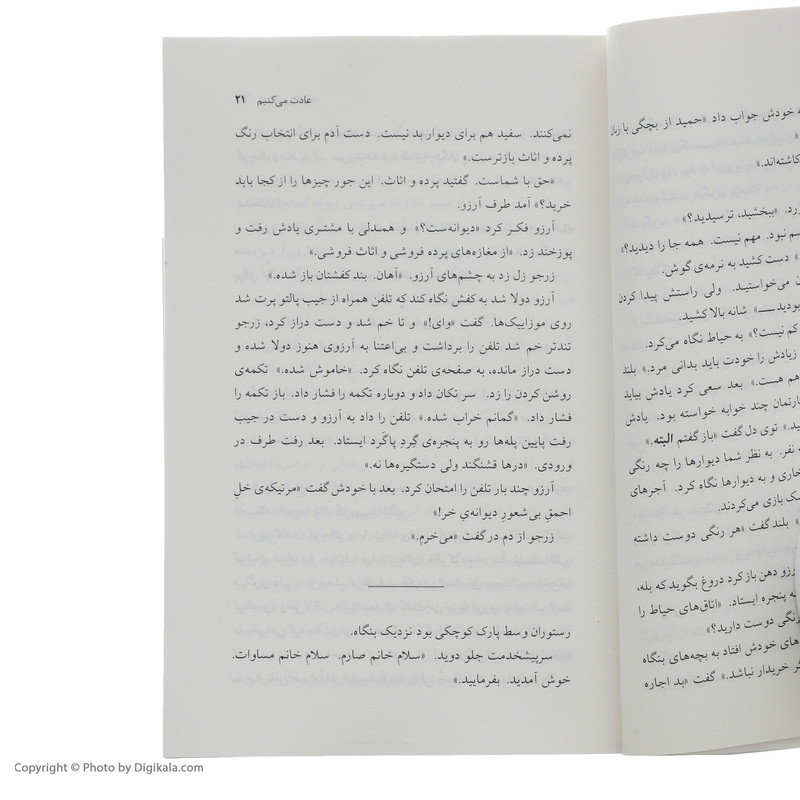 ه خودش جواب داد «حمید از بچگی با زبان
»
کاشته‌اند.»
رد. «ببخشید، ترسیدید؟»
سم نبود. مهم نیست. همه جا را دیدید؟»
» دست کشید به نرمه‌ی گوش.
ن می‌خواستید. ولی راستش پیدا کردن
بودید ــــ» شانه بالا کشید.
کم نیست؟» به حیاط نگاه می‌کرد.
زیادش را خودت باید بدانی مرد.» بلند
هم هست.» بعد سعی کرد یادش بیاید
ارتمان چند خوابه خواسته بود. یادش
ید.» توی دل گفت «باز گفتم البته.»
نفر. به نظر شما دیوارها را چه رنگی
خاری و به دیوارها نگاه کرد. آجرهای
سک بازی می‌کردند.
» بلند گفت «هر رنگی دوست داشته
رزو دهن باز کرد دروغ بگوید که بله،
ه پنجره ایستاد. «اتاق‌های حیاط را
رنگی دوست دارید؟»
های خودش افتاد به بچه‌های بنگاه
گر خریدار نباشد.» گفت «بد اجاره
عادت می‌کنیم ۲۱
نمی‌کنند. سفید هم برای دیوار بد نیست. دست آدم برای انتخاب رنگ
پرده و اثاث بازترست.»
«حق با شماست. گفتید پرده و اثاث. این جور چیزها را از کجا باید
خرید؟» آمد طرف آرزو.
آرزو فکر کرد «دیوانه‌ست؟» و همدلی با مشتری یادش رفت و
پوزخند زد. «از مغازه‌های پرده فروشی و اثاث فروشی.»
زرجو زل زد به چشم‌های آرزو. «آهان. بند کفشتان باز شده.»
آرزو دولا شد به کفش نگاه کند که تلفن همراه از جیب پالتو پرت شد
روی موزاییک‌ها. گفت «وای!» و تا خم شد و دست دراز کرد، زرجو
تندتر خم شد تلفن را برداشت و بی‌اعتنا به آرزوی هنوز دولا شده و
دست دراز مانده، به صفحه‌ی تلفن نگاه کرد. «خاموش شده.» تکمه‌ی
روشن کردن را زد. سر تکان داد و دوباره تکمه را فشار داد. باز تکمه را
فشار داد. «گمانم خراب شده.» تلفن را داد به آرزو و دست در جیب
رفت پایین پله‌ها رو به پنجره‌ی گِردِ پاگَرد ایستاد. بعد رفت طرف در
ورودی. «درها قشنگند ولی دستگیره‌ها نه.»
آرزو چند بار تلفن را امتحان کرد. بعد با خودش گفت «مرتیکه‌ی خلِ
احمقِ بی‌شعورِ دیوانه‌یِ خر!»
زرجو از دم در گفت «می‌خرم.»
رستوران وسط پارک کوچکی بود نزدیک بنگاه.
سرپیشخدمت جلو دوید. «سلام خانم صارم. سلام خانم مساوات.
خوش آمدید. بفرمایید.»
Copyright © Photo by Digikala.com